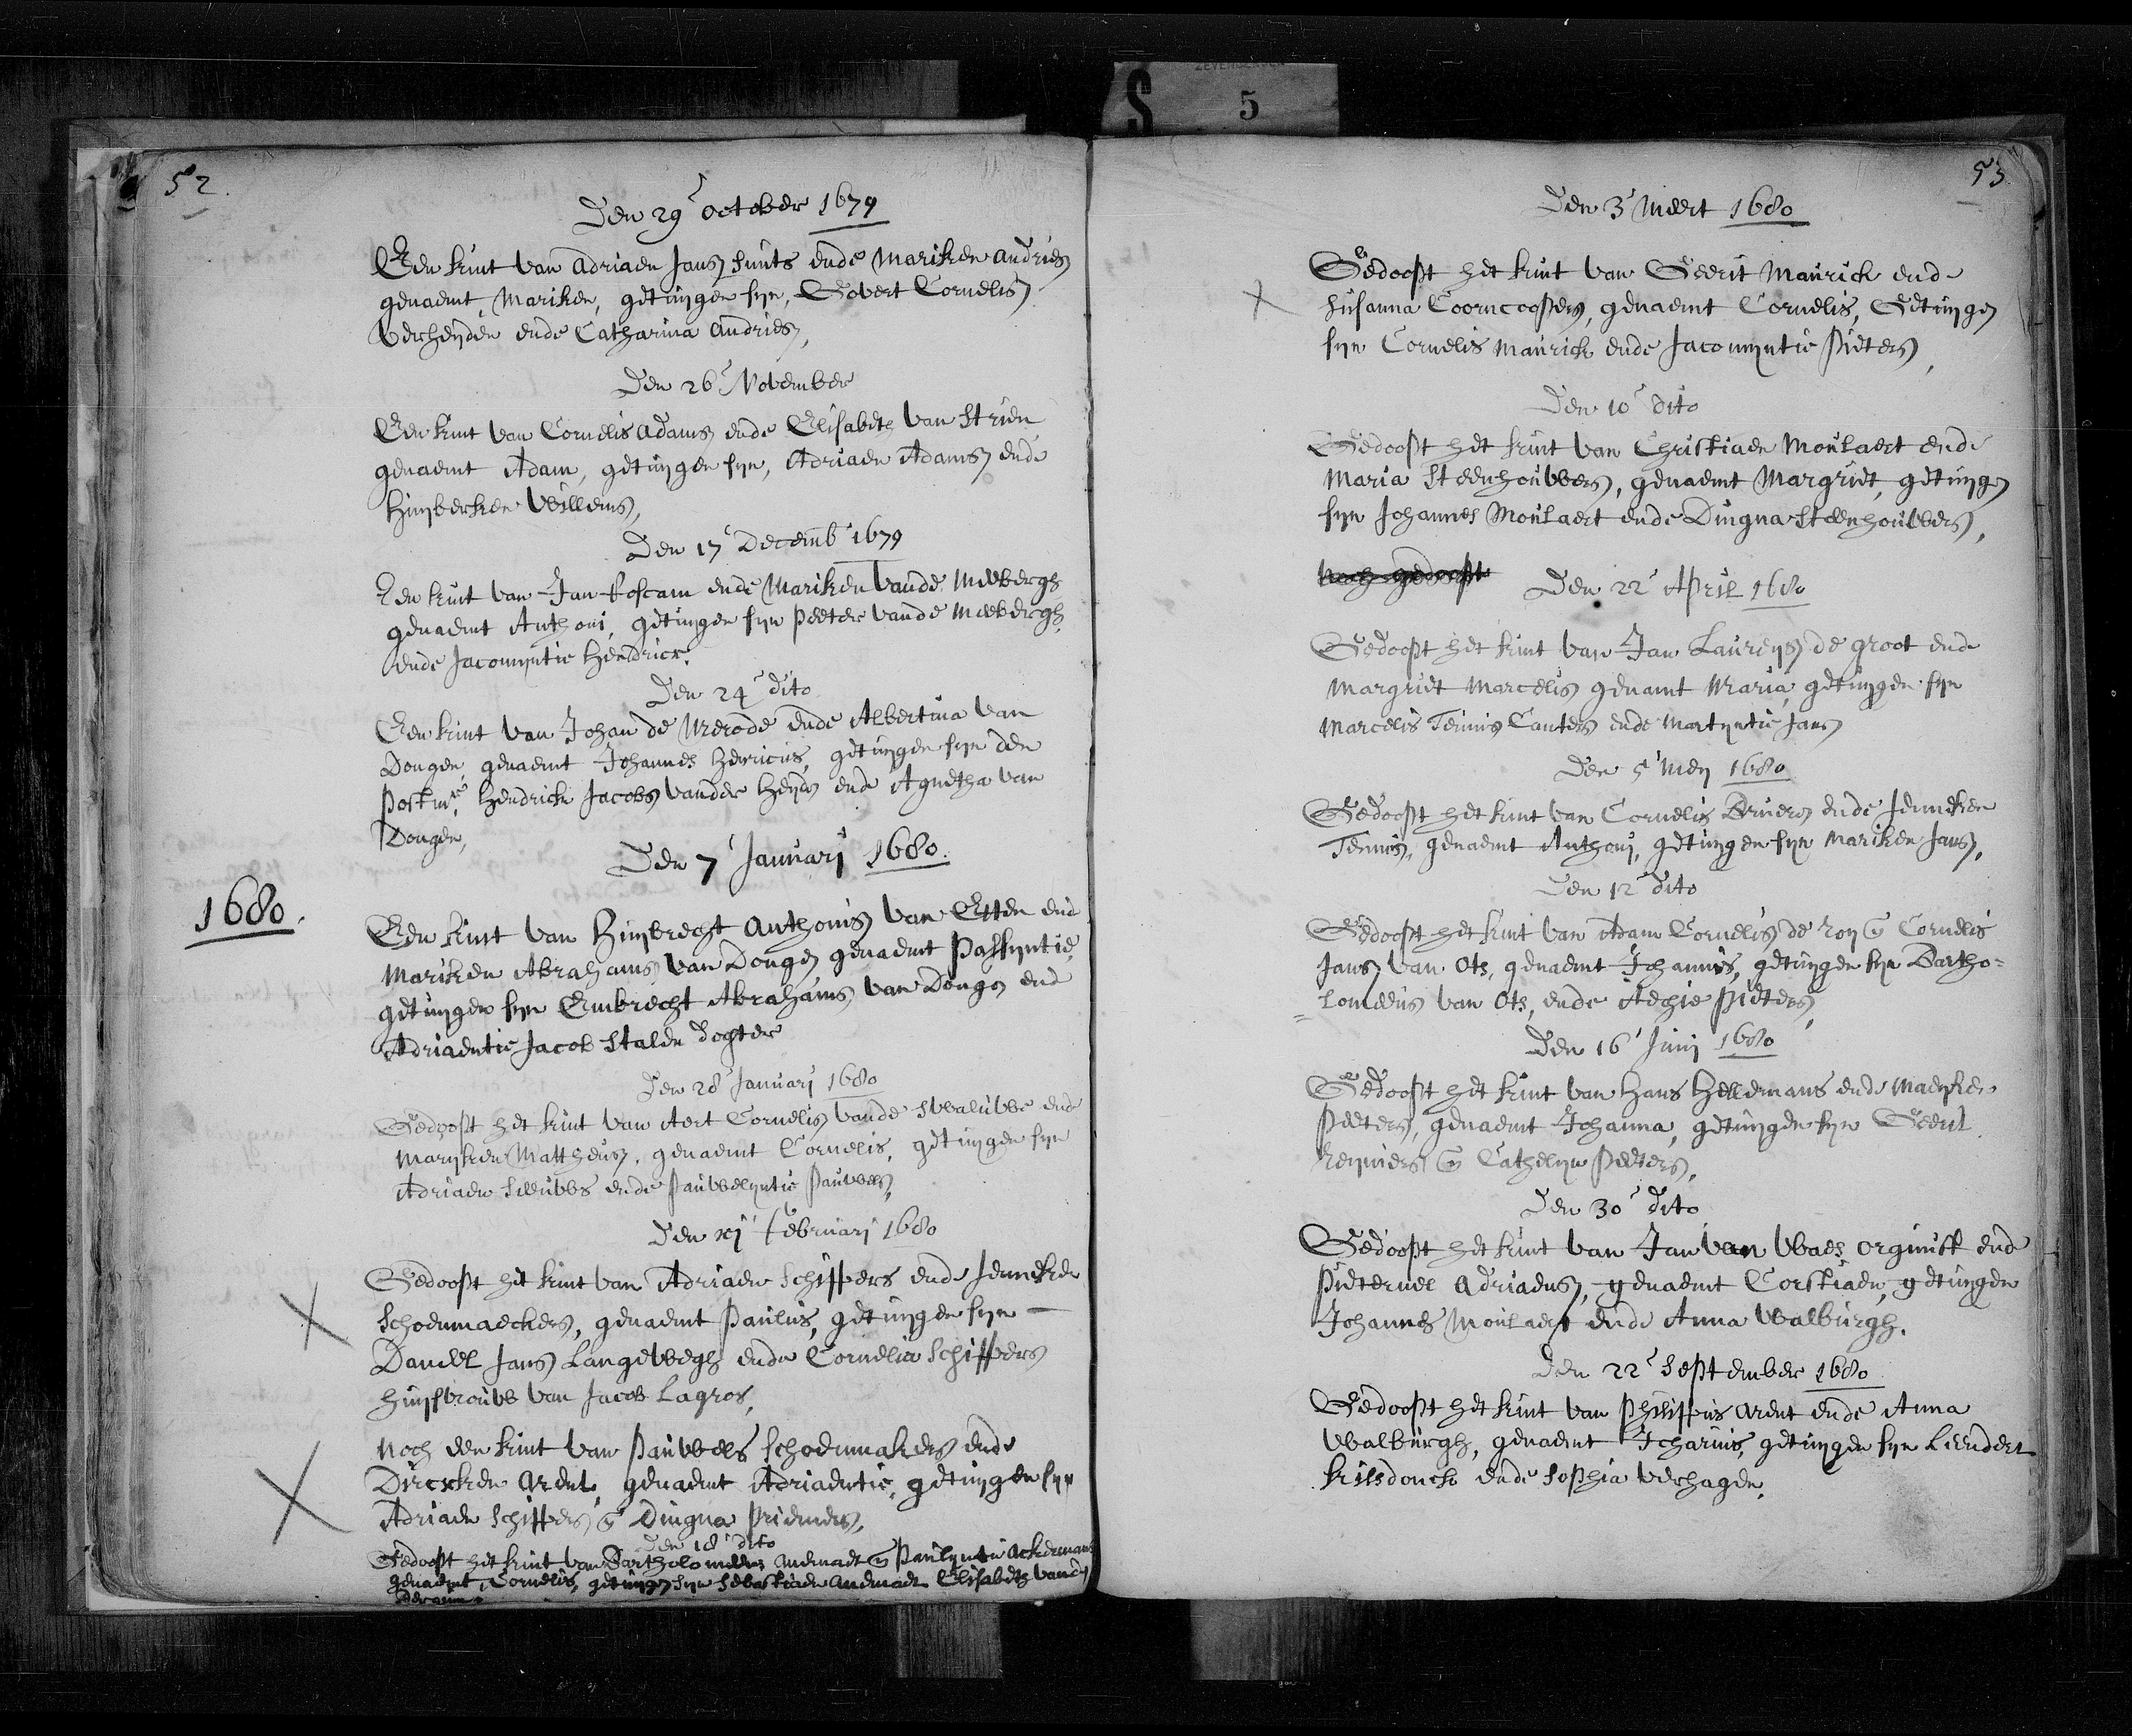 S 5
52
Den 29 october 1679
Een kint van Adriaen Jans Smits ende Mariken Andries
genaemt Mariken, getuygen syn, Govert Cornelis
Verheyden ende Catharina Andries,
Den 26 November
Een kint van Cornelis Adams ende Elisabeth van Strien
genaemt Adam, getuygen syn, Adriaen Adams ende
Huyberken Willems,
Den 17 Decemb 1679
Een kint van Jan Roscam ende Mariken vande Meebergh
genaemt Anthoni, getuygen syn Peeter vande Meebergh
ende Jacomyntie Hendricx.
Den 24 dito
Een kint van Johan de Merode ende Albertina van
Dongen, genaemt Johannes Henricus, getuygen syn den
Postmr. Hendrick Jacobs vander Heyde ende Agnetha van
Dongen,
Den 7 Januarj 1680
1680.
Een kint van Huybrecht Anthonis van Etten ende
Mariken Abrahams van Dongen genaemt Passyntie,
getuygen syn Embrecht Abrahams van Dongen ende
Adriaentie Jacob Stalen dochter
Den 28 Januarj 1680
Gedoopt het kint van Aert Cornelis vande Swaluwe ende
Maryken Mattheus, genaemt Cornelis, getuygen syn
Adriaen Leeuws ende Pauwelyntie Pauwels,
Den xj februarj 1680
Gedoopt het kint van Adriaen Schippers ende Jenneken
Schoenmaeckers, genaemt Paulus, getuygen syn
Daniel Jans Langewegh ende Cornelia Schippers
huysvrouw van Jacob Lagros,
Noch een kint van Pauwels Schoenmakers ende
Dircxken Arent, genaemt Adriaentie, getuygen syn
Adriaen Schippers en Dingna
Den 18 dito
Gedoopt het kint van Bartholomeeus en Paulyntie Ackermans
genaemt Cornelis, getuygen syn Sebastiaen Elisabeth vande
53
Den 3 Meert 1680
Gedoopt het kint van Geerit Maurick ende
Susanna Coorncoopers, genaemt Cornelis, Getuygen
syn Cornelis Maurick ende Jacomyntie Pieters,
Den 10 dito
Gedoopt het kint van Christiaen Moulaert ende
Maria Steenhouwers, genaemt Margriet, getuygen
syn Johannes Moulaert ende Dingna Steenhouwers,
Noch gedoopt
Den 22 April 1680
Gedoopt het kint van Jan Laureys de groot ende
Margriet Marcelis genaemt Maria, getuygen syn
Marcelis Teunis Canters ende Martyntie Jans
Den 5 Mey 1680
Gedoopt het kint van Cornelis Bruers ende Jenneken
Teunis, genaemt Anthoni, getuygen syn Mariken Jans,
Den 12 dito
Gedoopt het kint van Adam Cornelis de Roy en Cornelis
Jans van Ots, genaemt Johannes, getuygen syn Bartho=
=lomeeus van Ots, ende Aechie Pieters,
Den 16 Junj 1680
Gedoopt het kint van Hans Hellemans ende Mayken
Peeters, genaemt Johanna, getuygen syn Geerit
Reyniers en Cathelyn Peeters,
Den 30 dito
Gedoopt het kint van Jan van Waes orginist ende
Pieternel Adriaens, genaemt Corstiaen, getuygen
Johannes Moulaert ende Anna Walburgh.
Den 22 September 1680
Gedoopt het kint van Philippus Arent ende Anna
Walburgh, genaemt getuygen syn Leendert
Kilsdonck ende Sophia Verhagen.